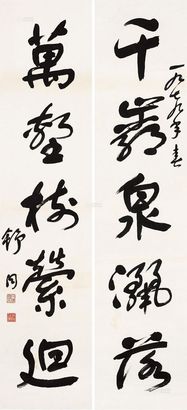 一九七九年春
千巖泉灑落
萬壑樹縈迴
舒同